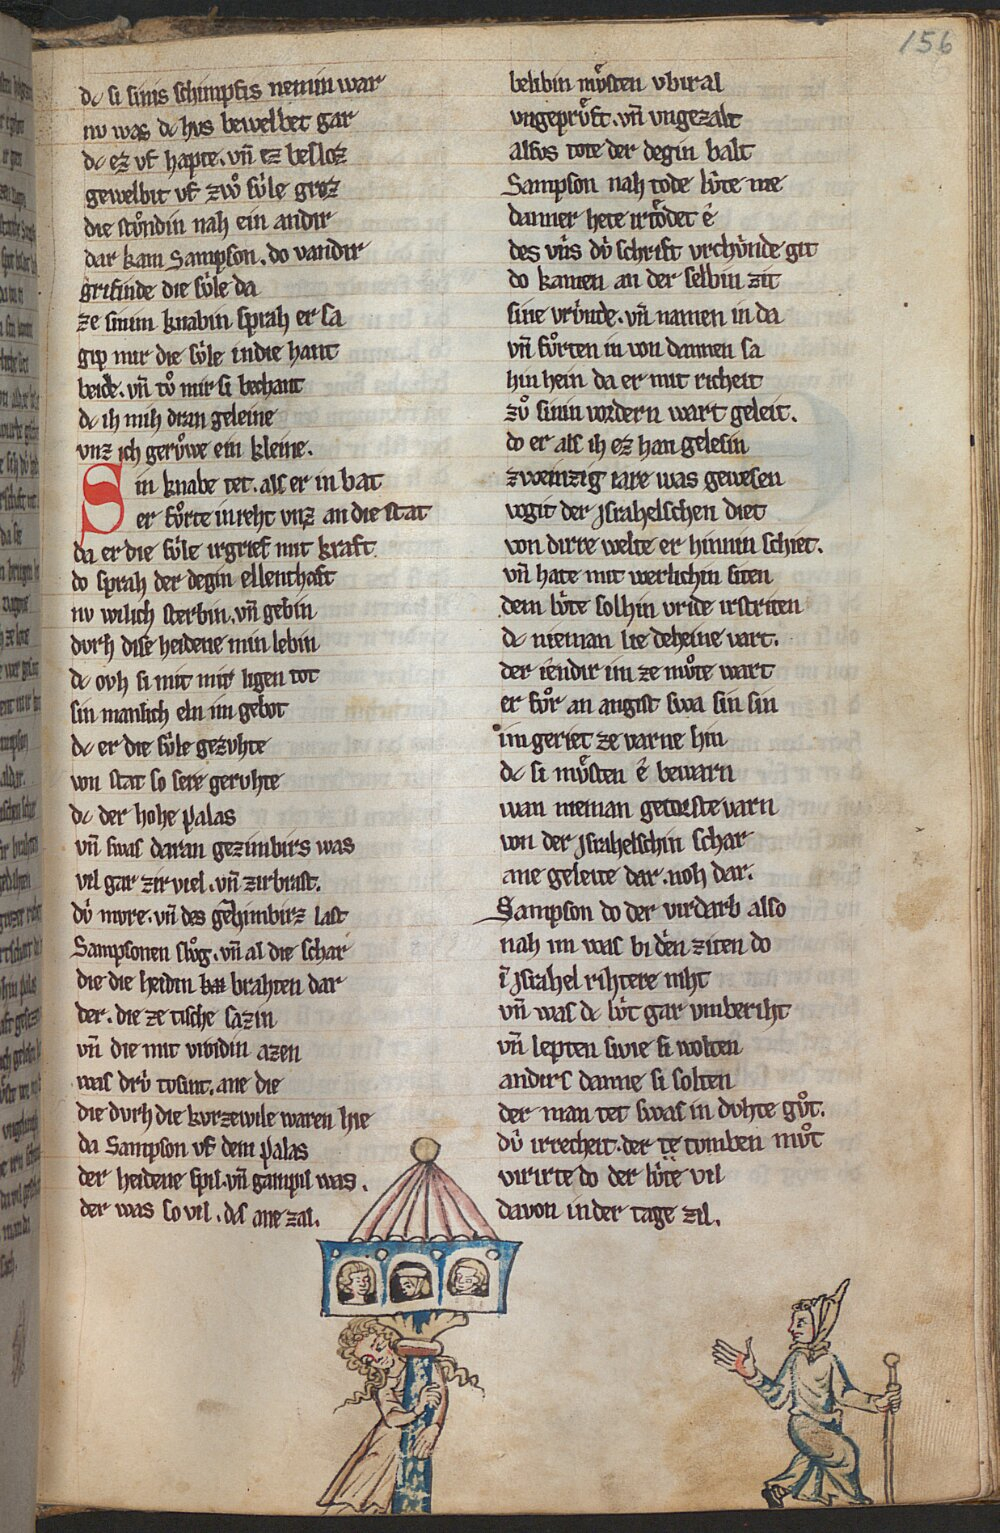 156
dc si sinis schimpfis nemin war
nv was dc hvs bewelbet gar
dc ez vf hapte. vn̄ ez besloz
gewelbit vf zwo svͥle groz
die stvͦndin nah ein andir
dar kam Sampson. do vandir
grifinde die svͥle da
ze sinim knabin sprah er sa
gip mir die svͥle indie hant
beide. vn̄ tvͦ mir si bechant
dc ih mih dran geleine
vnz ich gervͦwe ein kleine.
Sin knabe tet. als er in bat
er fvͦrte in reht vnz an die stat
da er die svͥle irgrief mit kraft
do sprah der degin ellenthaft
nv wilich sterbin. vn̄ gebin
dvrh dise heidene min lebin
dc ovh si mit mir ligen tot
sin manlich eln im gebot
dc er die svͥle gezvhte
von stat so sere gervhte
dc der hohe palas
vn̄ swas daran gezimbirs was
vil gar zirviel. vn̄ zirbrast.
dvͥ mvre. vn̄ des gezhimbirz last
Sampsonen slvͦg. vn̄ al die schar
die die heidin brahten dar
der. die ze tische sazin
vn̄ die mit vroidin azen
was drvͥ tosint. ane die
die dvrh die kvrzewile waren hie
da Sampson vf dem palas
der heidene spil. vn̄ gampil was.
der was so vil. das ane zal.
belibin mvͤsten vbir al
vngeprvͤft. vn̄ vngezalt
alsvs tote der degin balt
Sampson nah tode lvͥte me
danner hete irtoͤdet e
des vns dvͥ schrift vrchvͥnde git
do kamen an der selbin zit
sine vrvͥnde. vn̄ namen in da
vn̄ fvͦrten in von dannen sa
hin hein da er mit richeit
zvͦ sinin vordern wart geleit.
do er als ih ez han gelesin
zweinzig iare was gewesen
vogit der Jsrahelschen diet
von dirre welte er hinnin schiet.
vn̄ hate mit werlichin siten
dem lvͥte solhin vride irstriten
dc nieman lie deheine vart.
der iendir im ze mvͦte wart
er fvͦr an angist swa sin sin
im geriet ze varne hin
dc si mvͤsten e bewarn
wan nieman getorste varn
von der Jsrahelschin schar
ane geleite dar. noh dar.
Sampson do der virdarb also
nah im was bi den ziten do
in Jsrahel rihtere niht
vn̄ was dc lvͥt gar vmberiht
vn̄ lepten swie si wolten
andirs danne si solten
der man tet swas in dvhte gvͦt.
dvͥ irrecheit. der tumben mvͦt
virirte do der lvͥte vil
davon inder tage zil.